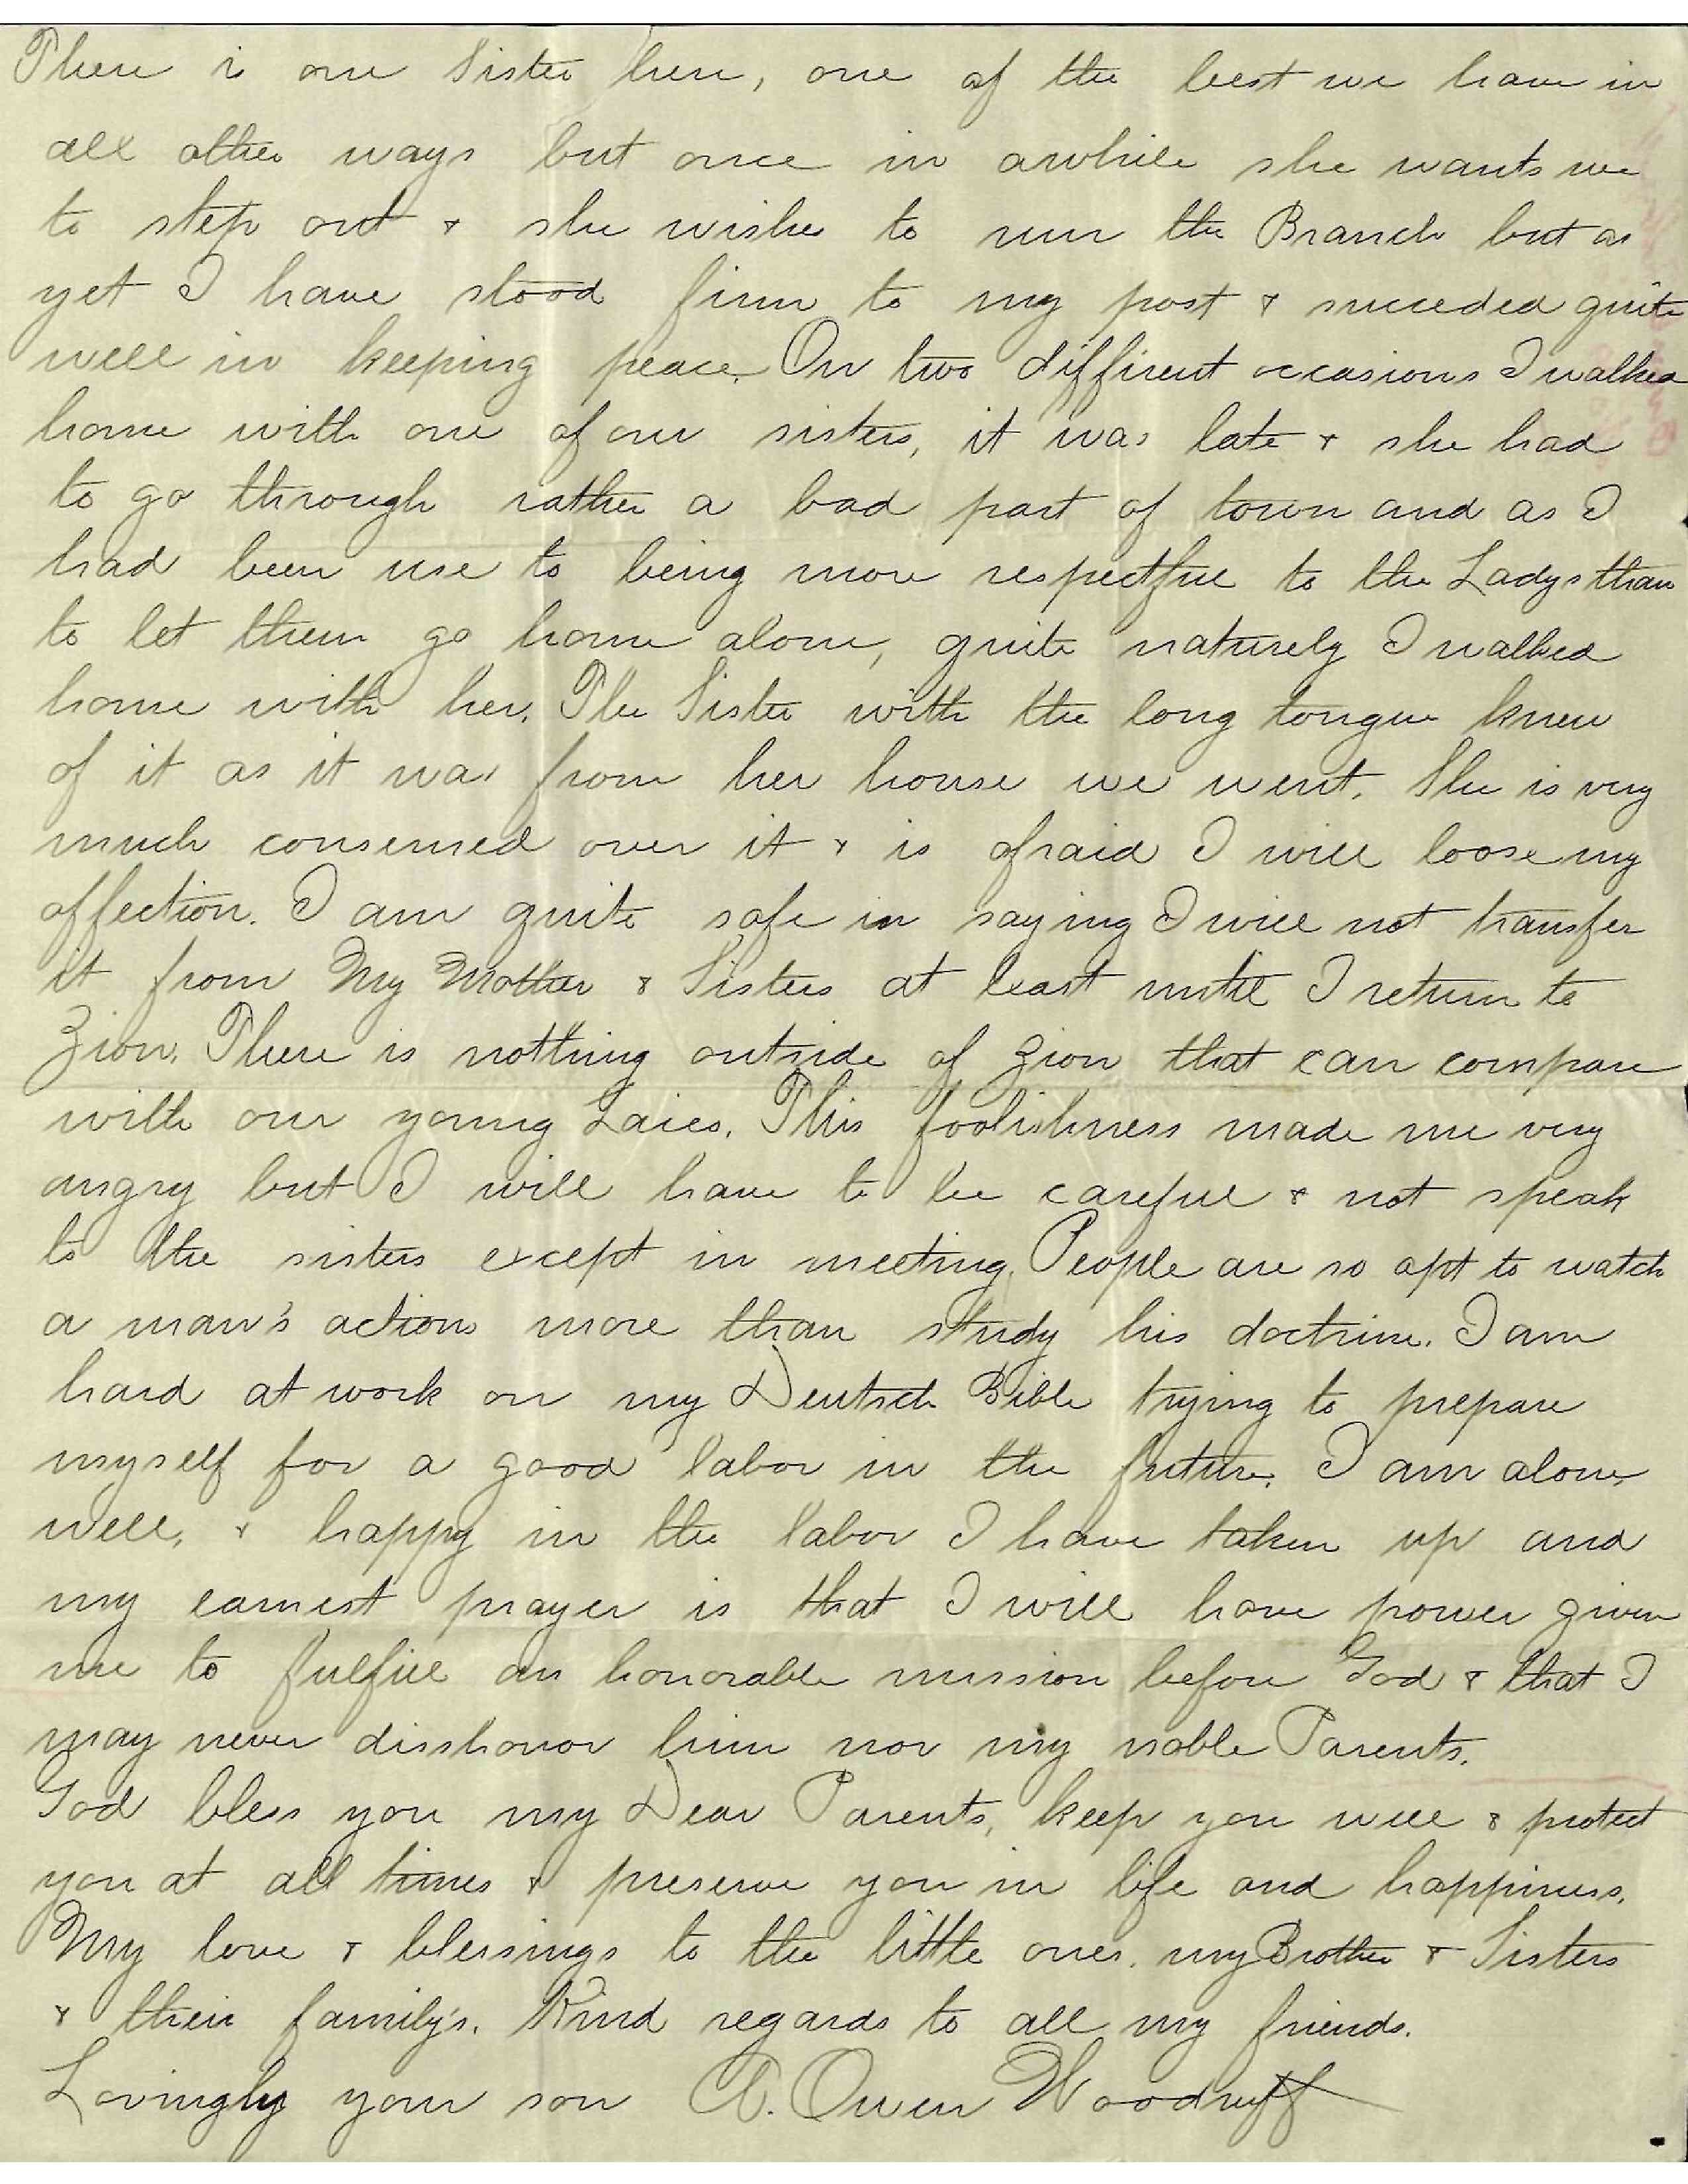 There is one Sister here, one of the best we have in
all other ways but once in awhile she wants me
to step out & she wishes to run the Branch but as
yet I have stood firm to my post & succeded quite
well in keeping peace. On two diffirent occasions I walked
home with one of our sisters, it was late & she had
to go through rather a bad part of town and as I
had been use to being more respectful to the Ladys than
to let them go home alone, quite naturely I walked
home with her. The Sister with the long tongue knew
of it as it was from her house we went. She is very
much conserned over it & is afraid I will loose my
affection. I am quite safe in saying I will not transfer
it from My Mother & Sisters at least until I return to
Zion. There is nothing outside of Zion that can compare
with our young Laies. This foolishness made me very
angry but I will have to be careful & not speak
to the sisters except in meeting. People are so apt to watch
a man's actions more than study his doctrine. I am
hard at work on my Deutsch Bible trying to prepare
myself for a good labor in the future. I am alone,
well, & happy in the labor I have taken up and
my earnest prayer is that I will have power given
me to fulfill an honorable mission before God & that I
may never disshonor him nor my noble Parents.
God bless you my Dear Parents, keep you well & protect
you at all times & preserve you in life and happiness.
My love & blessings to the little ones, my Brother & Sisters
& their family's. Kind regards to all my friends.
Lovingly your son A. Owen Woodruff